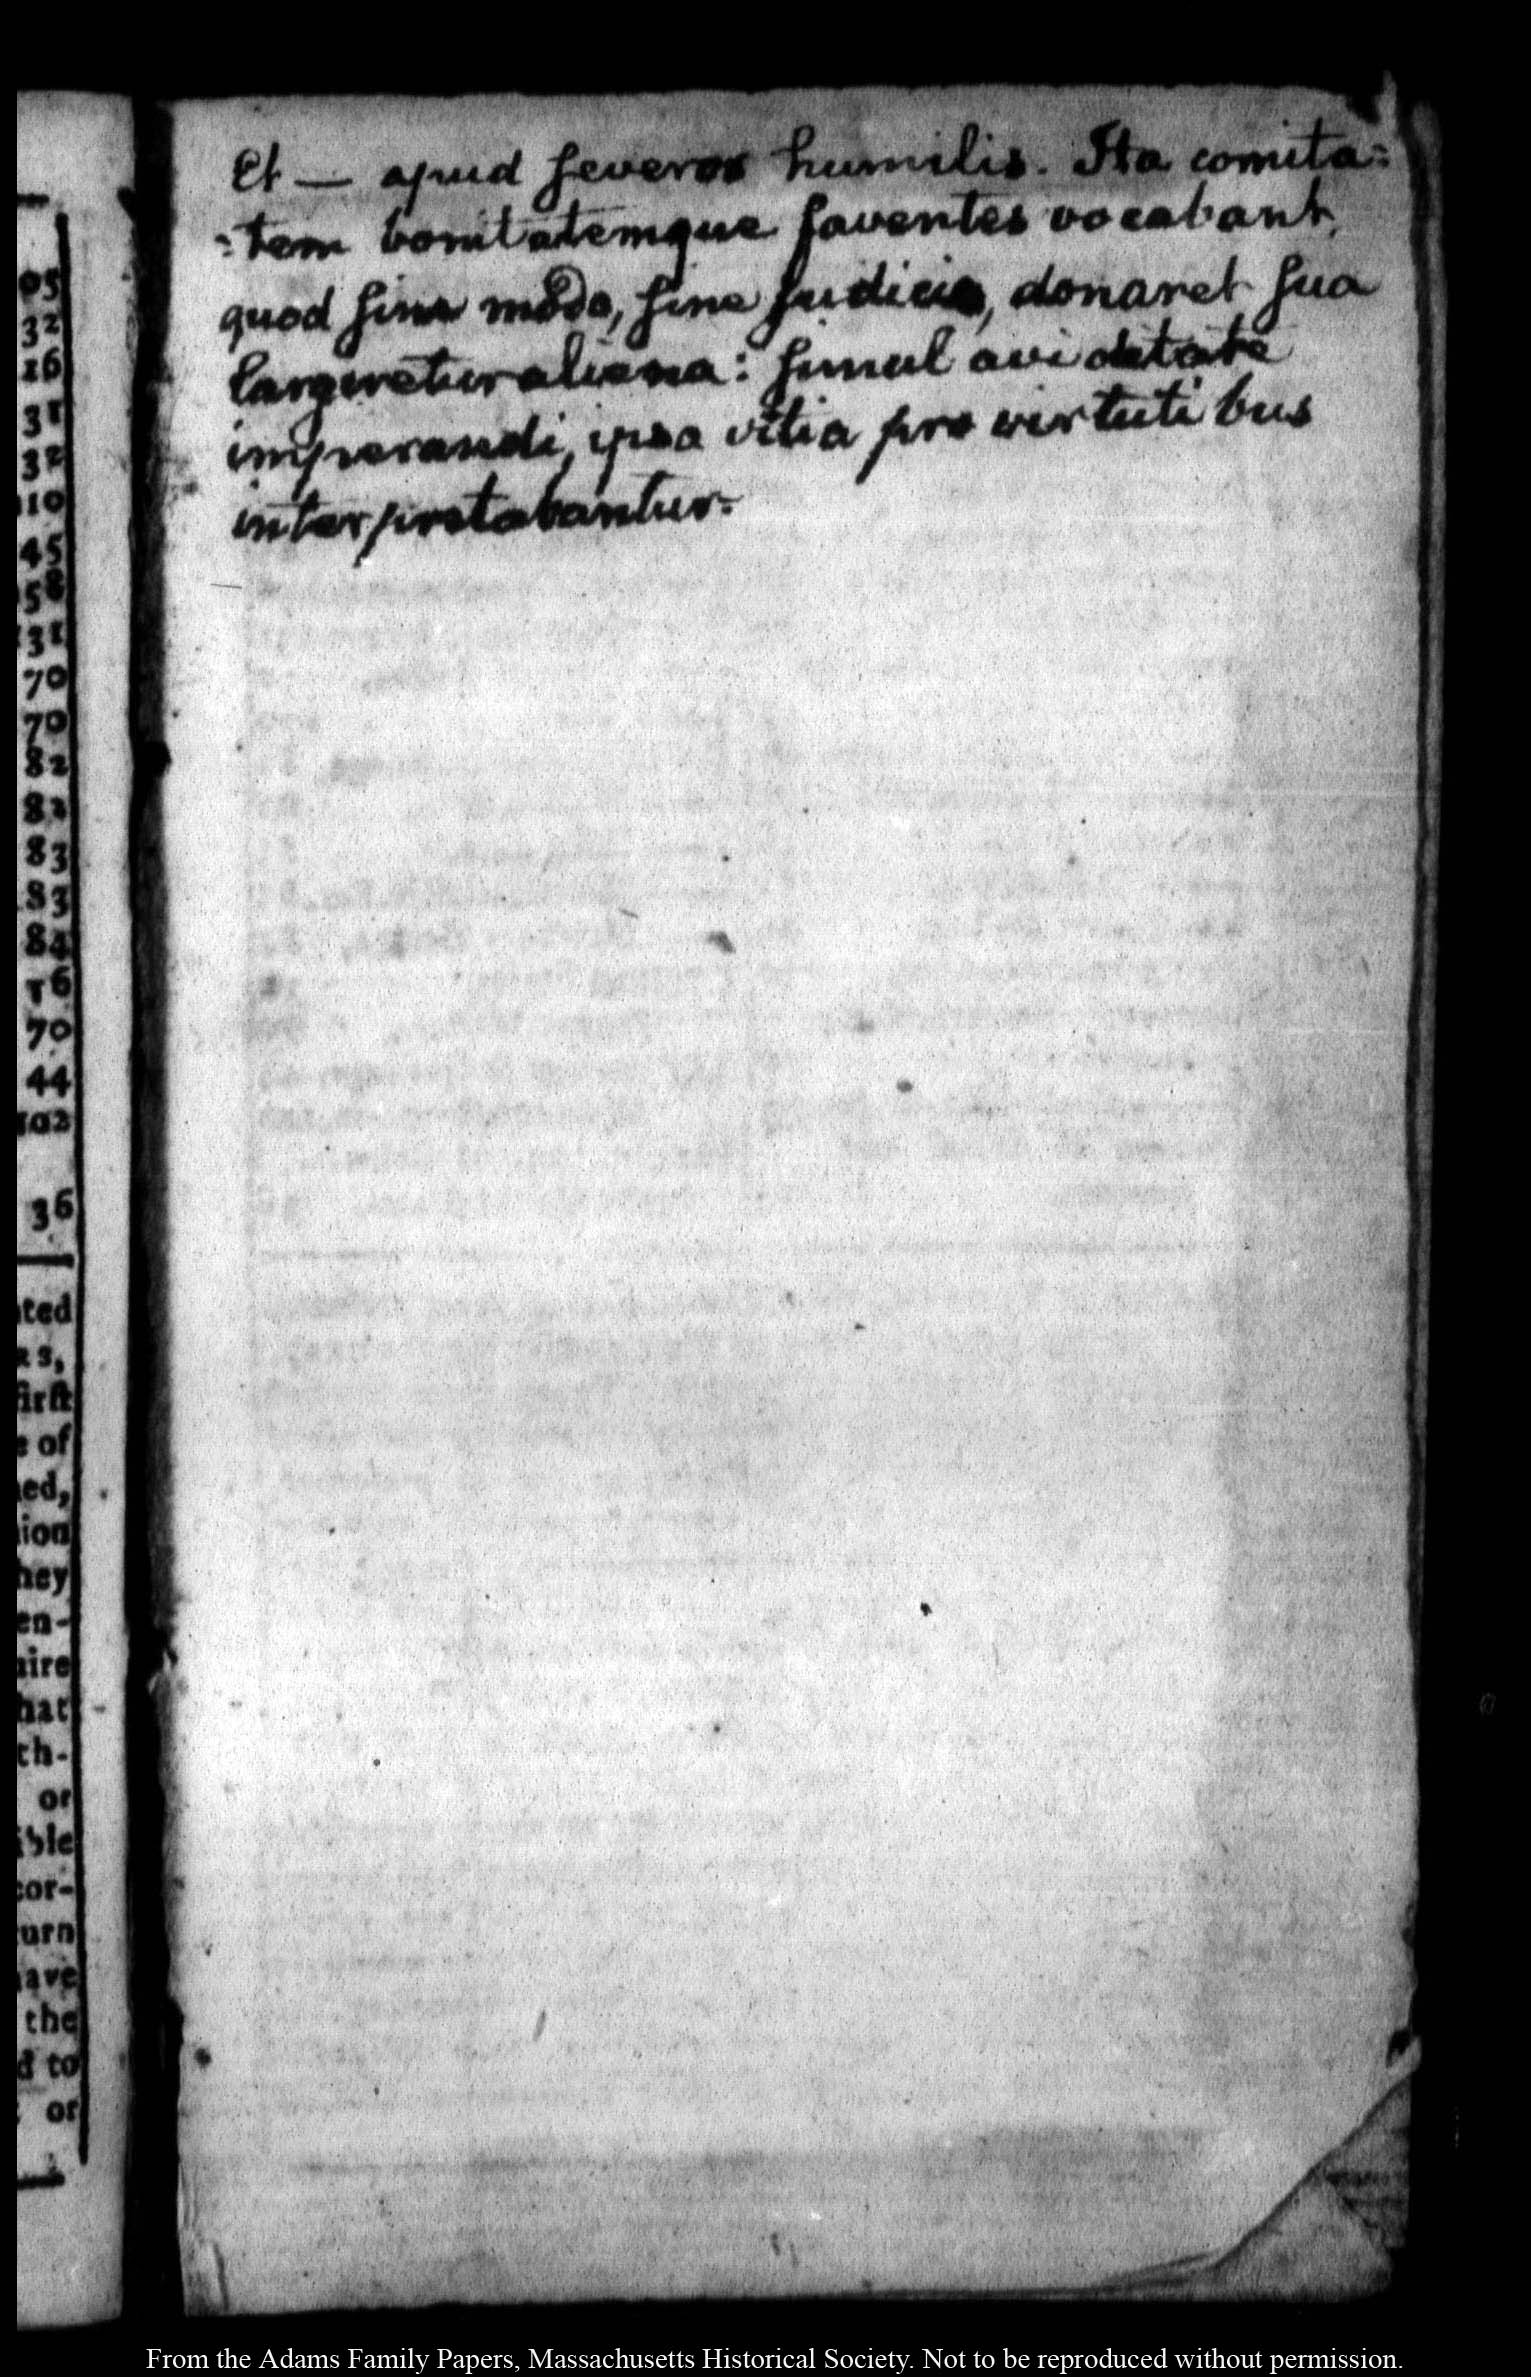 Et — apud severos humilis. Ita comita=
=tem bonitatemque faventes vocabant,
quod sine modo, sine judicio, donaret sua
largiretur aliena: simul aviditate
imperandi, ipsa vitia pro virtutibus
interpretabantur.
95
32
16
31
32
110
45
58
131
70
70
82
82
83
83
84
16
70
44
102
36
ted
rs,
first
e of
ed,
ion
hey
en-
aire
hat
th-
or
ible
cor-
turn
have
the
d to
or
From the Adams Family Papers, Massachusetts Historical Society. Not to be reproduced without permission.